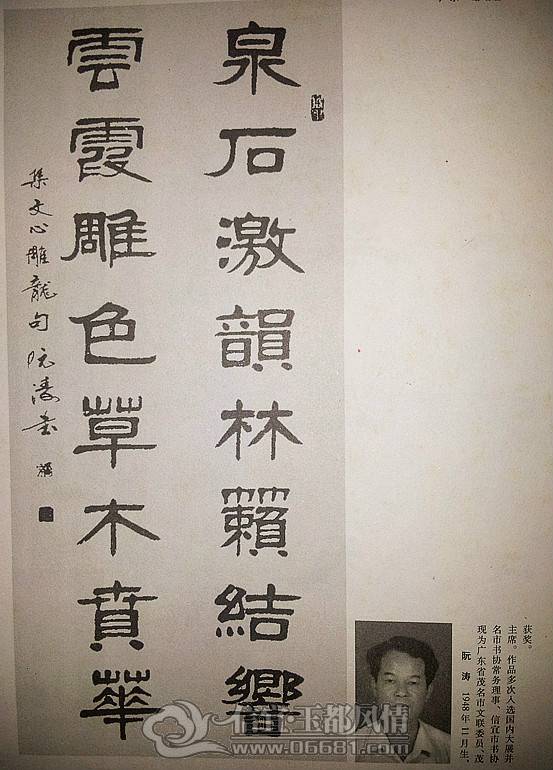 泉石激韻林籟結響
雲霞雕色草木賁華
集文心雕龍句 阮濤书
阮 涛 1948年11月生，
现为广东省茂名市文联委员、茂
名市书协常务理事、信宜市书协
主席。作品多次入选国内大展并
获奖。
玉都风情
www.06681.com